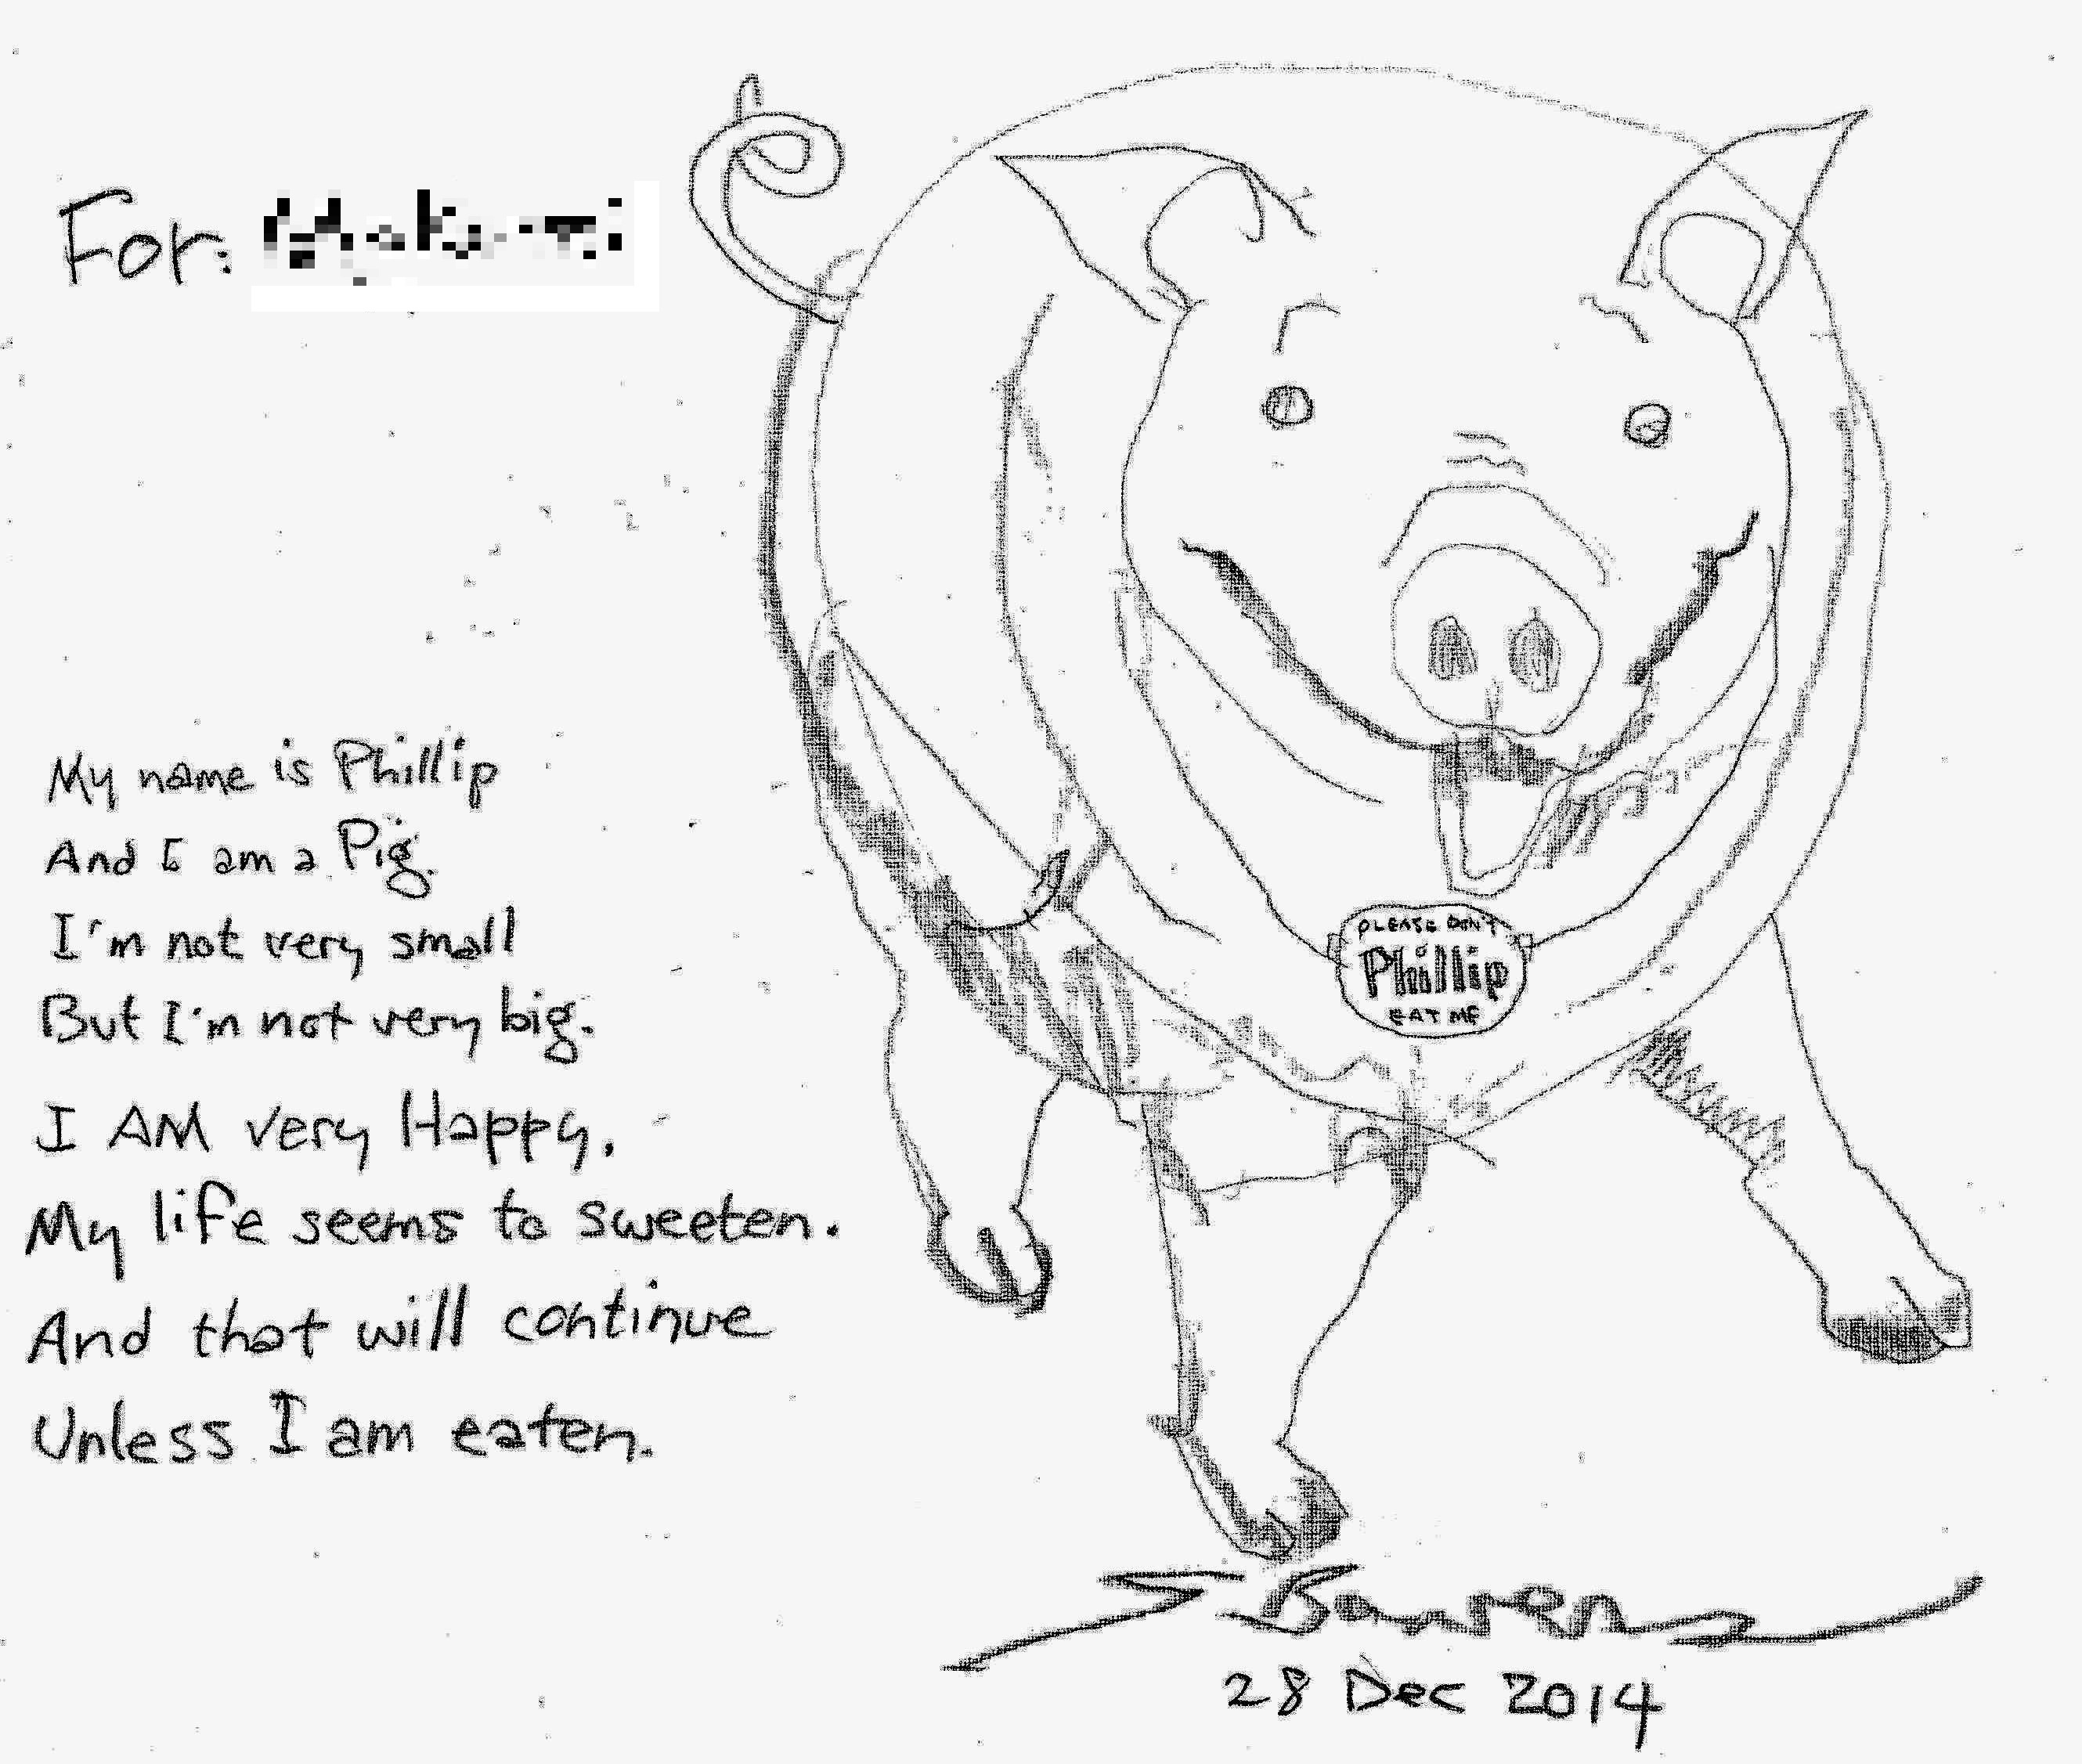 For:
My name is Phillip
And I am a Pig.
I'm not very small
But I'm not very big.
I AM very Happy.
My life seems to sweeten.
And that will continue
Unless I am eaten.
PLEASE DON'T
Phillip
EAT ME
28 Dec 2014